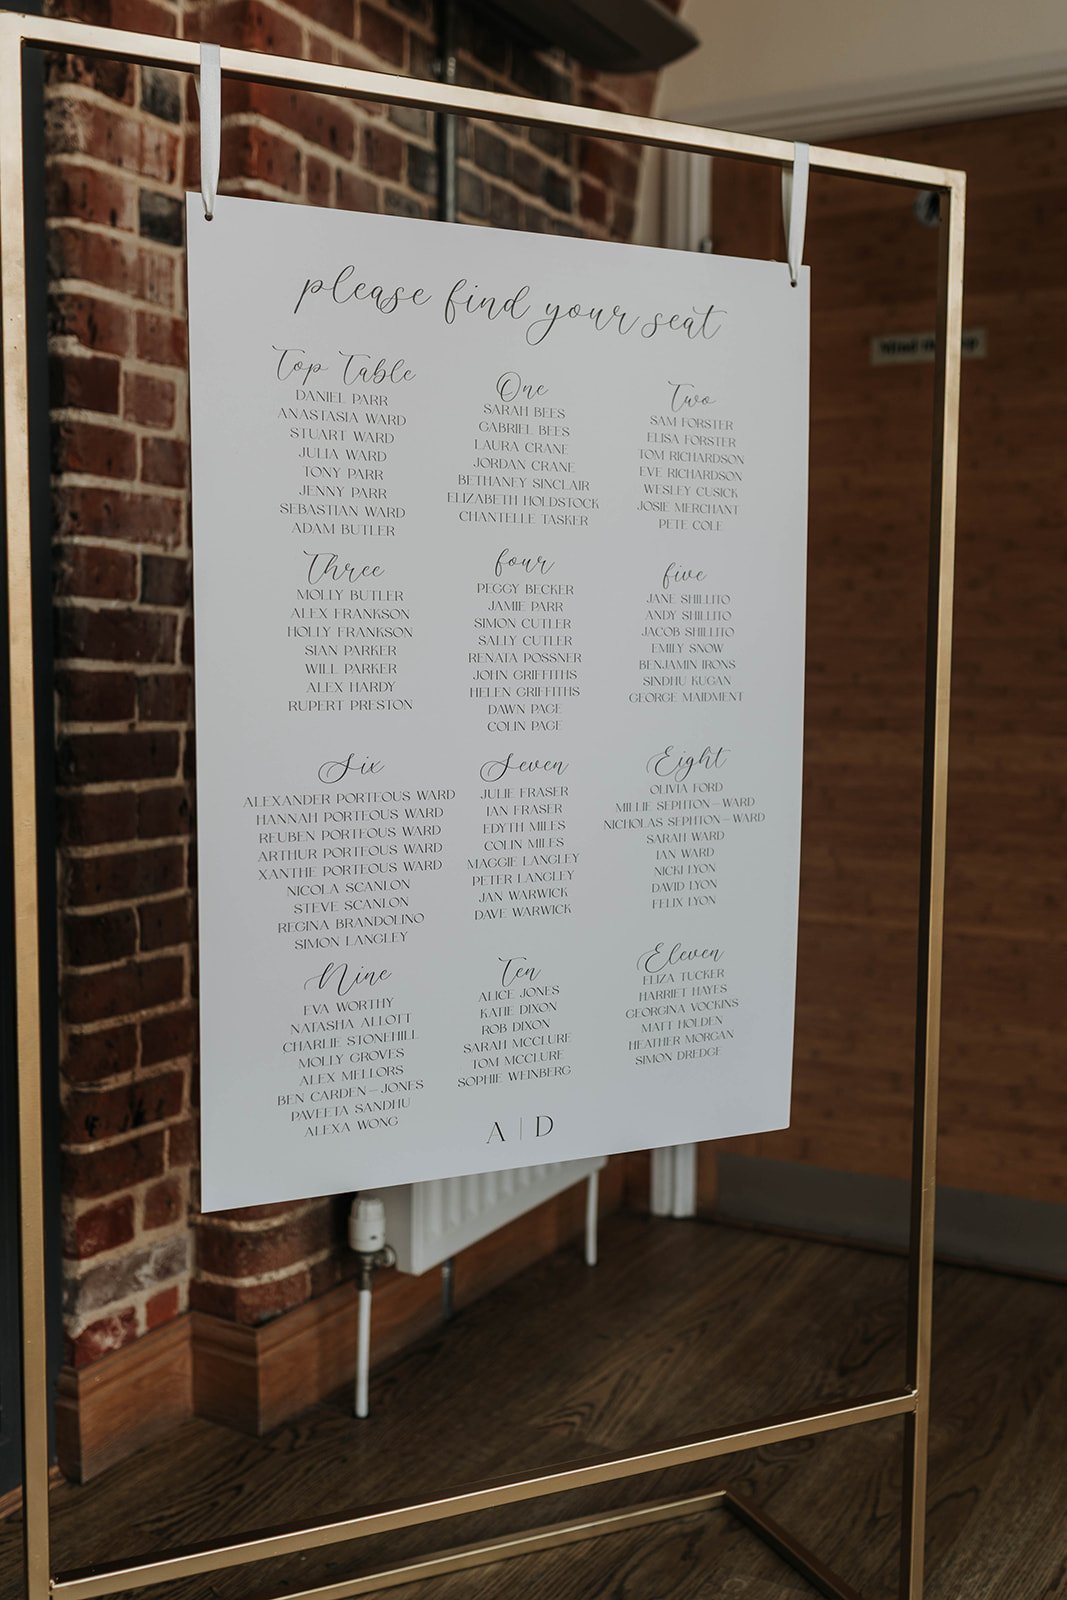 please find your seat
Top Table
DANIEL PARR
ANASTASIA WARD
STUART WARD
JULIA WARD
TONY PARR
JENNY PARR
SEBASTIAN WARD
ADAM BUTLER
One
SARAH BEES
GABRIEL BEES
LAURA CRANE
JORDAN CRANE
BETHANEY SINCLAIR
ELIZABETH HOLDSTOCK
CHANTELLE TASKER
Two
SAM FORSTER
ELISA FORSTER
TOM RICHARDSON
EVE RICHARDSON
WESLEY CUSICK
JOSIE MERCHANT
PETE COLE
Three
MOLLY BUTLER
ALEX FRANKSON
HOLLY FRANKSON
SIAN PARKER
WILL PARKER
ALEX HARDY
RUPERT PRESTON
four
PEGGY BECKER
JAMIE PARR
SIMON CUTLER
SALLY CUTLER
RENATA POSSNER
JOHN GRIFFITHS
HELEN GRIFFITHS
DAWN PAGE
COLIN PAGE
five
JANE SHILLITO
ANDY SHILLITO
JACOB SHILLITO
EMILY SNOW
BENJAMIN IRONS
SINDHU KUGAN
GEORGE MAIDMENT
Six
ALEXANDER PORTEOUS WARD
HANNAH PORTEOUS WARD
REUBEN PORTEOUS WARD
ARTHUR PORTEOUS WARD
XANTHE PORTEOUS WARD
NICOLA SCANLON
STEVE SCANLON
REGINA BRANDOLINO
SIMON LANGLEY
Seven
JULIE FRASER
IAN FRASER
EDYTH MILES
COLIN MILES
MAGGIE LANGLEY
PETER LANGLEY
JAN WARWICK
DAVE WARWICK
Eight
OLIVIA FORD
MILLIE SEPHTON-WARD
NICHOLAS SEPHTON-WARD
SARAH WARD
IAN WARD
NICKI LYON
DAVID LYON
FELIX LYON
Nine
EVA WORTHY
NATASHA ALLOTT
CHARLIE STONEHILL
MOLLY GROVES
ALEX MELLORS
BEN CARDEN-JONES
PAVEETA SANDHU
ALEXA WONG
Ten
ALICE JONES
KATIE DIXON
ROB DIXON
SARAH MCCLURE
TOM MCCLURE
SOPHIE WEINBERG
Eleven
ELIZA TUCKER
HARRIET HAYES
GEORGINA VOCKINS
MATT HOLDEN
HEATHER MORGAN
SIMON DREDGE
A | D